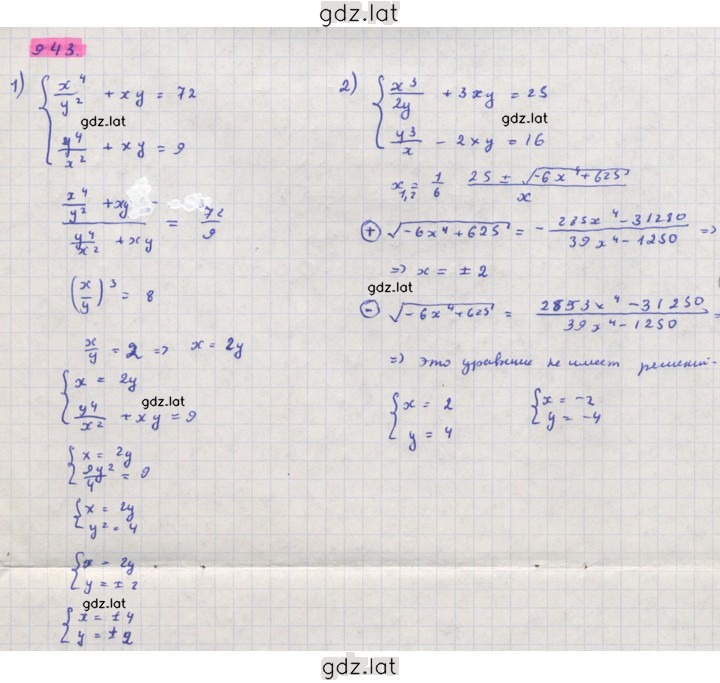 gdz.lat
943.
1) { x⁴/y² + xy = 72
gdz.lat
y⁴/x² + xy = 9
(x⁴/y² + xy) / (y⁴/x² + xy) = 72/9
(x/y)³ = 8
x/y = 2 => x = 2y
{ x = 2y
gdz.lat
y⁴/x² + xy = 9
{ x = 2y
9y²/4 = 9
{ x = 2y
y² = 4
{ x = 2y
y = ± 2
gdz.lat
{ x = ± 4
y = ± 2
2) { x³/2y + 3xy = 25
gdz.lat
y³/x - 2xy = 16
x₁,₂ = 1/6 (25 ± √(-6x⁴+625))/x
⊕ √(-6x⁴+625) = - (285x⁴-31250)/(39x⁴-1250) =>
gdz.lat
=> x = ± 2
⊖ √(-6x⁴+625) = (2853x⁴-31250)/(39x⁴-1250) =
=> это уравнение не имеет решений.
{ x = 2
y = 4
{ x = -2
y = -4
gdz.lat